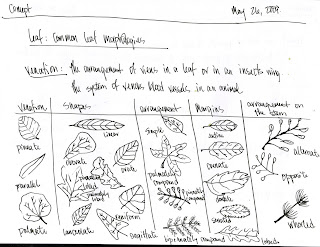 Concept
May 26, 2009.
Leaf: Common leaf morphologies
Venation: the arrangement of viens in a leaf or in an insect's wing.
the system of venous blood vessels in an animal.
Venation Shapes arrangement Margins arrangement on the stem
pinnate
parallel
palmate
linear
obovate
ovate
lanceolate
reniform
sagittate
simple
palmately compound
pinnately compound
bipinnately compound
entire
crenate
dentate
serrated
lobed
alternate
opposite
whorled